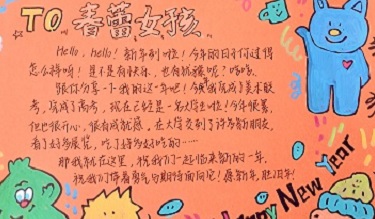 TO 春蕾女孩
Hello, hello! 新年到啦! 今年的日子过得
怎么样呀! 是不是有快乐, 也有犹豫呢? 哈哈,
跟你分享一下我的这一年吧! 今我完成了美术联
考, 完成了高考, 现在已经是一名大学生啦! 今年很累
但也很开心, 很有成就感, 在大学交到了许多新朋友,
看了好多展览, 吃了好多好吃的……
那我就在这里, 祝我们一起迎来新的一年,
祝我们带着勇气与期待面向它! 愿新年, 胜旧年!
Happy New Year